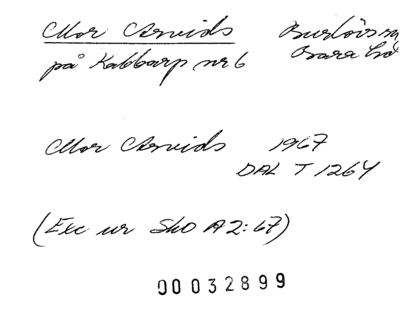 Mor Arvids Burlövs
på Kabbarp nr 6 Bara hd
Mor Arvids 1967
DAL T 1264
(Exc ur SkO A 2:67)
00032899